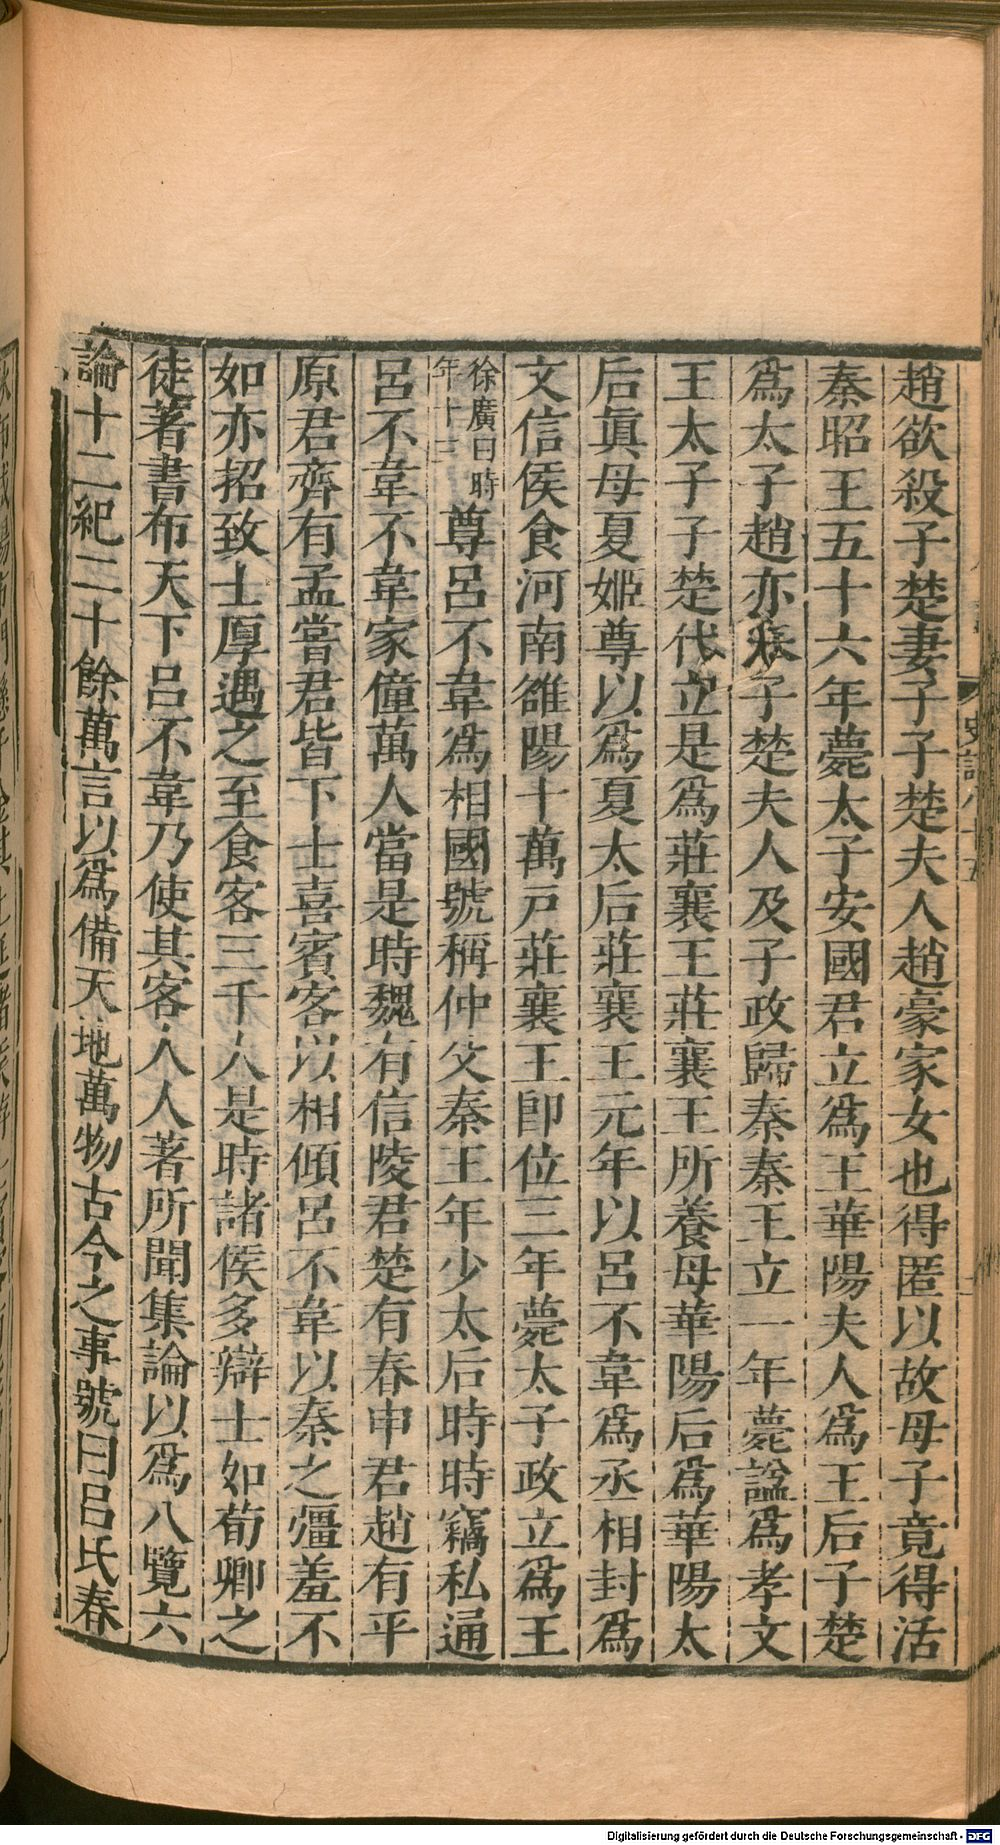 趙欲殺子楚妻子子楚夫人趙豪家女也得匿以故母子竟得活
秦昭王五十六年薨太子安國君立爲王華陽夫人爲王后子楚
爲太子趙亦奉子楚夫人及子政歸秦秦王立一年薨諡爲孝文
王太子子楚代立是爲莊襄王莊襄王所養母華陽后爲華陽太
后眞母夏姬尊以爲夏太后莊襄王元年以呂不韋爲丞相封爲
文信侯食河南雒陽十萬戸莊襄王卽位三年薨太子政立爲王
徐廣曰時
年十三
尊呂不韋爲相國號稱仲父秦王年少太后時時竊私通
呂不韋不韋家僮萬人當是時魏有信陵君楚有春申君趙有平
原君齊有孟嘗君皆下士喜賓客以相傾呂不韋以秦之彊羞不
如亦招致士厚遇之至食客三千人是時諸侯多辯士如荀卿之
徒著書布天下呂不韋乃使其客人人著所聞集論以爲八覽六
論十二紀二十餘萬言以爲備天地萬物古今之事號曰呂氏春
史記八十五
Digitalisierung gefördert durch die Deutsche Forschungsgemeinschaft - DFG